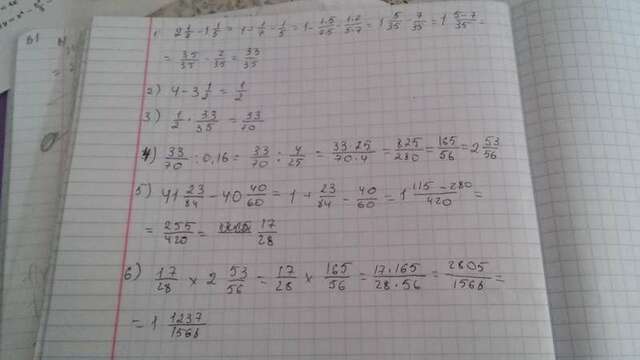 1) 2 1/7 - 1 1/5 = 1 + 1/7 - 1/5 = 1 - 1·5/7·5 - 1·7/5·7 = 1 5/35 - 7/35 = 1 5-7/35 =
= 35/35 - 2/35 = 33/35
2) 4 - 3 1/2 = 1/2
3) 1/2 · 33/35 = 33/70
4) 33/70 : 0,16 = 33/70 : 4/25 = 33·25/70·4 = 825/280 = 165/56 = 2 53/56
5) 41 23/84 - 40 40/60 = 1 + 23/84 - 40/60 = 1 115-280/420 =
= 255/420 = 17/28
6) 17/28 × 2 53/56 = 17/28 × 165/56 = 17·165/28·56 = 2805/1568 =
= 1 1237/1568